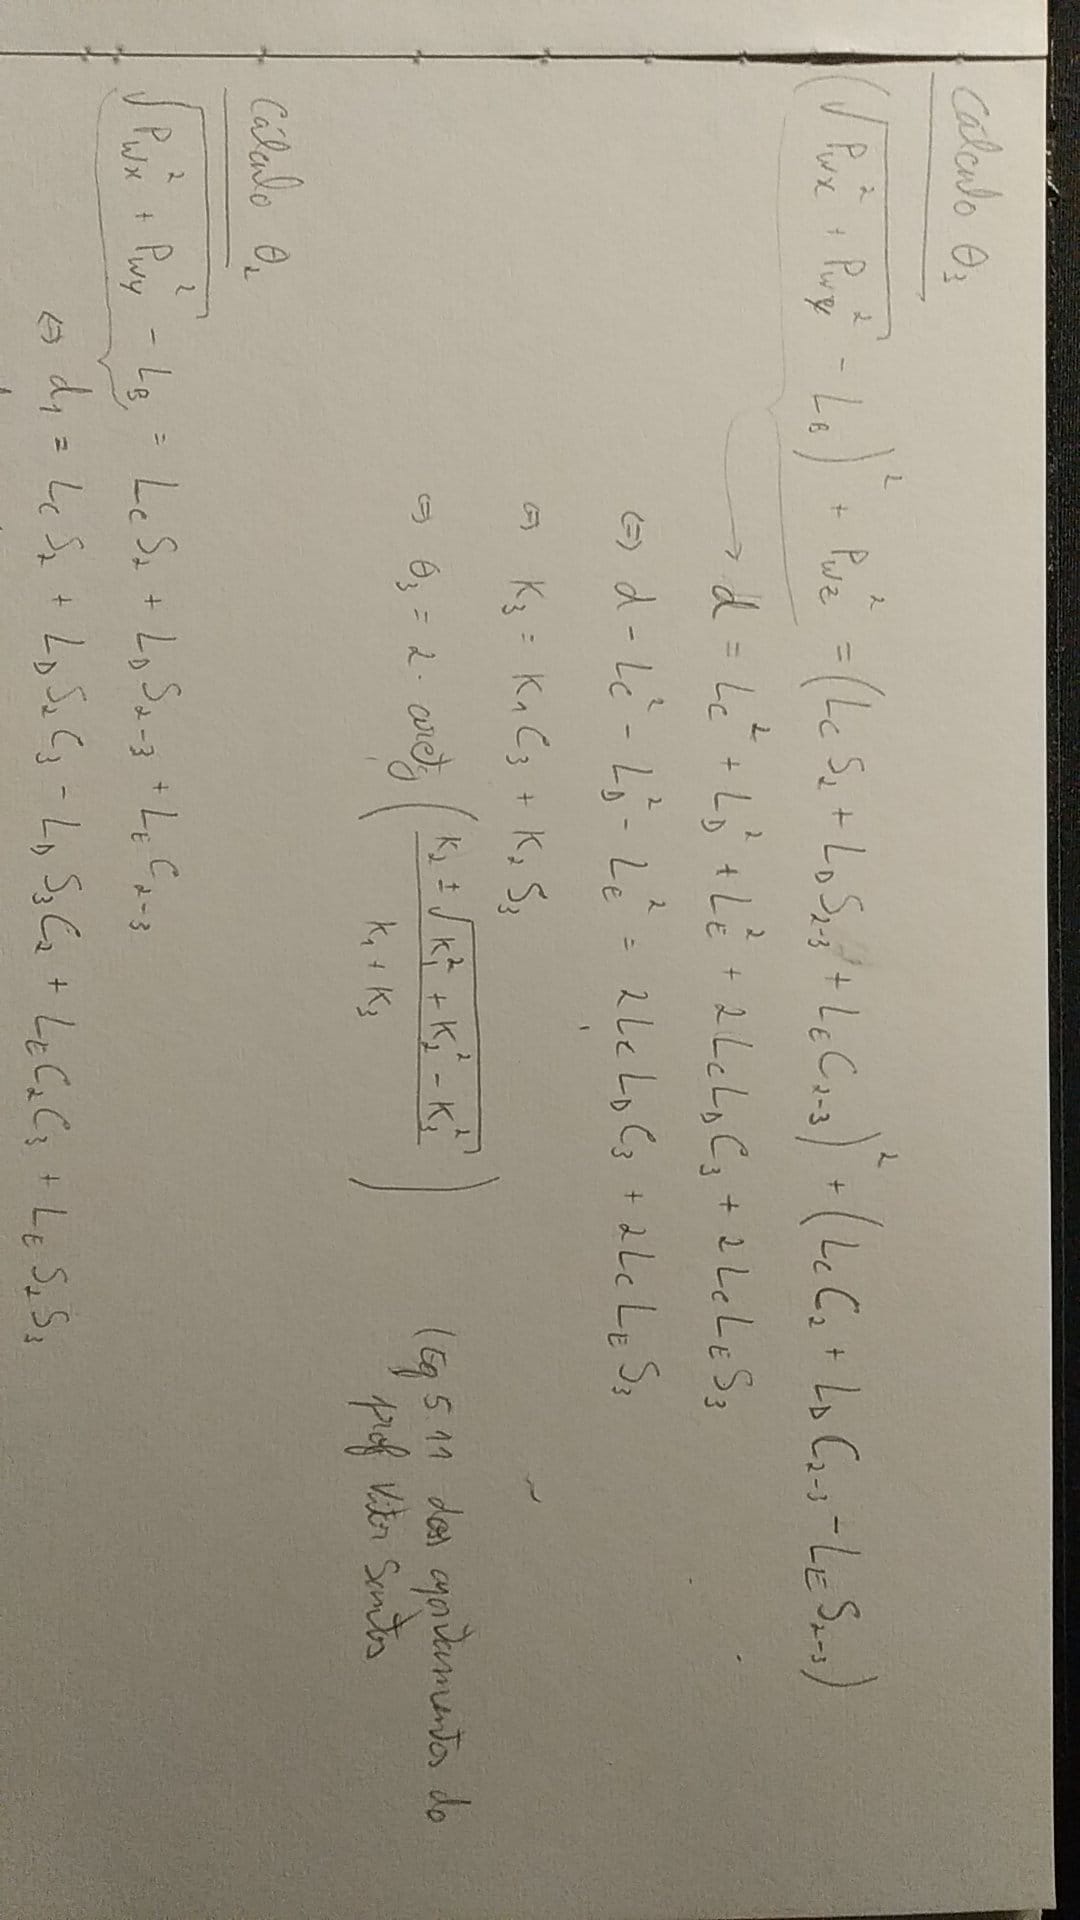 Cálculo θ₃
(√(P_wx² + P_wy²) - L_B)² + P_wz² = (L_C S₂ + L_D S₂₋₃ + L_E C₂₋₃)² + (L_C C₂ + L_D C₂₋₃ - L_E S₂₋₃)
→ d = L_C² + L_D² + L_E² + 2 L_C L_D C₃ + 2 L_C L_E S₃
⇔ d - L_C² - L_D² - L_E² = 2 L_C L_D C₃ + 2 L_C L_E S₃
⇔ K₃ = K₁ C₃ + K₂ S₃
⇔ θ₃ = 2 · arctg ( (K₂ ± √(K₁² + K₂² - K₃²)) / (K₁ + K₃) )
(Eq 5.11 dos apontamentos do
prof Vitor Santos
Cálculo θ₂
√(P_wx² + P_wy²) - L_B = L_C S₂ + L_D S₂₋₃ + L_E C₂₋₃
⇔ d₁ = L_C S₂ + L_D S₂ C₃ - L_D S₃ C₂ + L_E C₂ C₃ + L_E S₂ S₃